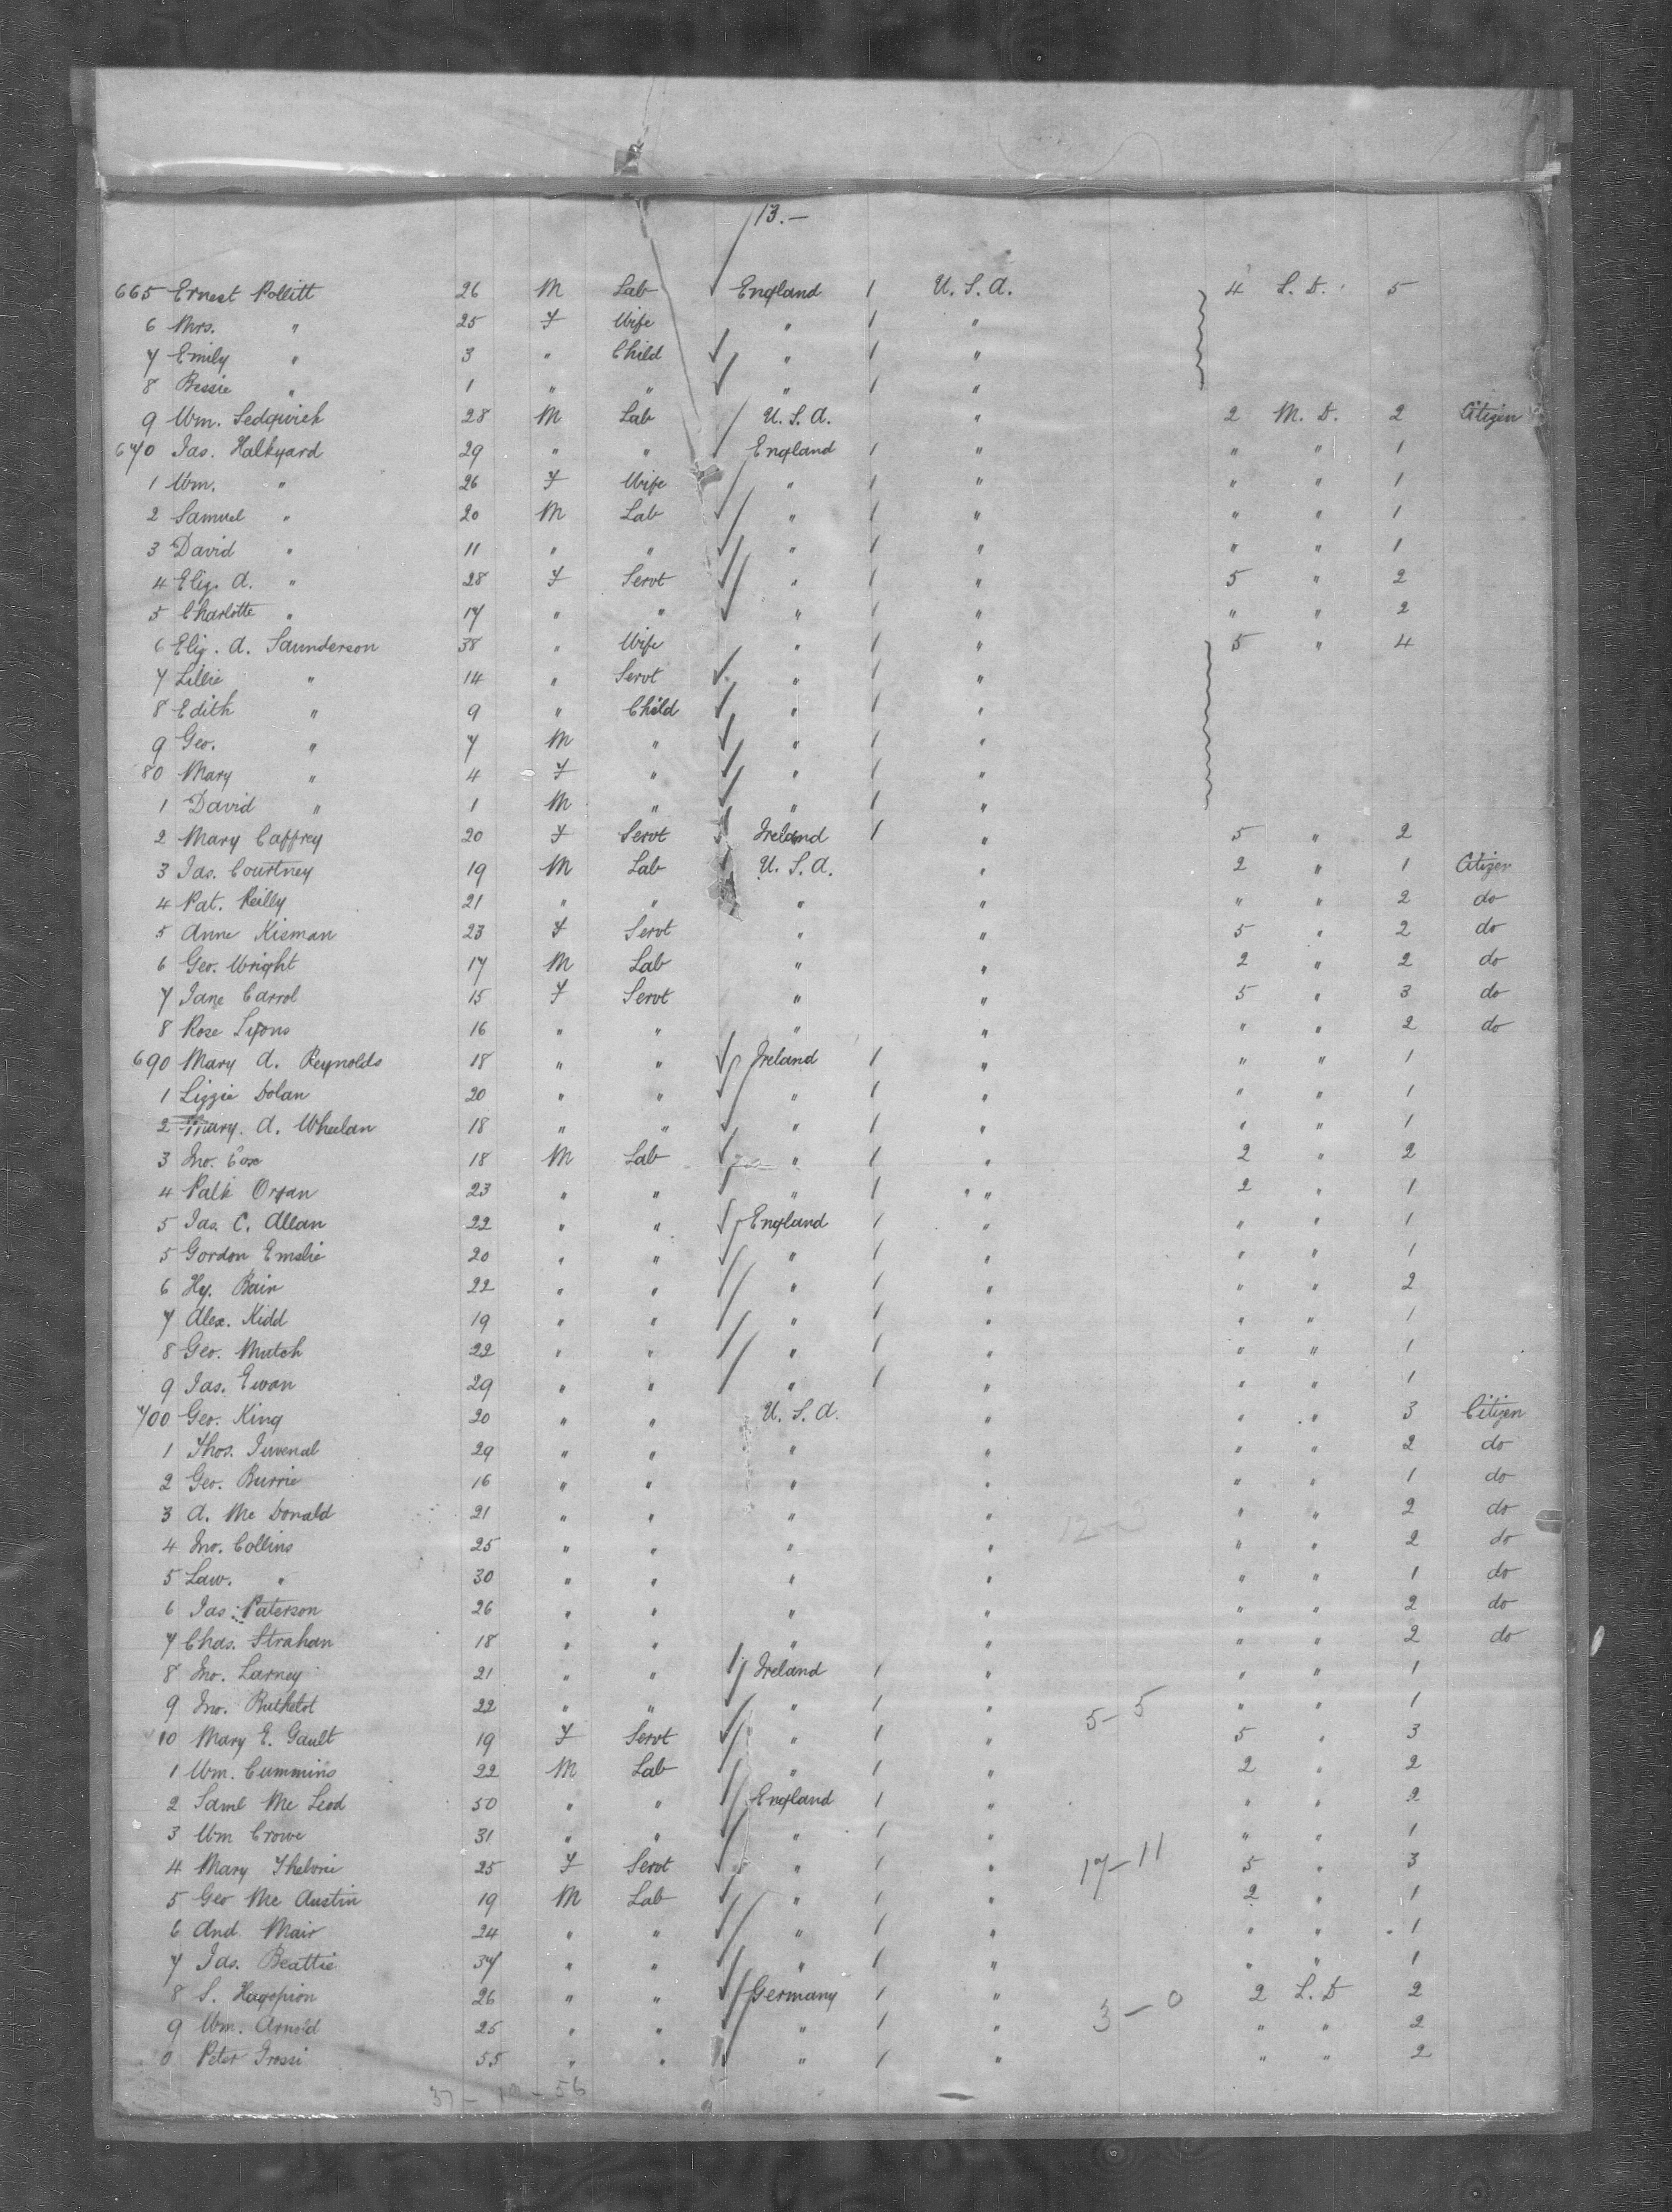 13.—
665 Ernest Pollitt 26 M Lab England 1 U.S.A. 4 S.D. 5
6 Mrs. " 25 F Wife " 1 "
7 Emily " 3 " Child " 1 "
8 Bessie " 1 " " " 1 "
9 Wm. Sedgwick 28 M Lab U.S.A. " 2 M.D. 2 Citizen
670 Jas. Halkyard 29 " " England 1 " " " 1
1 Wm. " 26 F Wife " 1 " " " 1
2 Samuel " 20 M Lab " 1 " " " 1
3 David " 11 " " " 1 " " " 1
4 Eliz. A. " 28 F Servt " 1 " 5 " 2
5 Charlotte " 17 " " " 1 " " " 2
6 Eliz. A. Saunderson 38 " Wife " 1 " 5 " 4
7 Lillie " 14 " Servt " 1 "
8 Edith " 9 " Child " 1 "
9 Geo. " 7 M " " 1 "
80 Mary " 4 F " " 1 "
1 David " 1 M " " 1 "
2 Mary Caffrey 20 F Servt Ireland 1 " 5 " 2
3 Jas. Courtney 19 M Lab U.S.A. " 2 " 1 Citizen
4 Pat. Reilly 21 " " " " " " 2 do
5 Anne Kisman 23 F Servt " " 5 " 2 do
6 Geo. Wright 17 M Lab " " 2 " 2 do
7 Jane Carrol 15 F Servt " " 5 " 3 do
8 Rose Lyons 16 " " " " " " 2 do
690 Mary A. Reynolds 18 " " Ireland 1 " " " 1
1 Lizzie Dolan 20 " " " 1 " " " 1
2 Mary. A. Wheelan 18 " " " 1 " " " 1
3 Jno. Cox 18 M Lab " 1 " 2 " 2
4 Patk Organ 23 " " " 1 " 2 " 1
5 Jas. C. Allan 22 " " England 1 " " " 1
5 Gordon Emslie 20 " " " 1 " " " 1
6 Hy. Bain 22 " " " 1 " " " 2
7 Alex. Kidd 19 " " " 1 " " " 1
8 Geo. Mutch 22 " " " 1 " " " 1
9 Jas. Ewan 29 " " " 1 " " " 1
700 Geo. King 20 " " U.S.A. " " " 3 Citizen
1 Thos. Juvenal 29 " " " " " " 2 do
2 Geo. Burrie 16 " " " " " " 1 do
3 A. McDonald 21 " " " " " " 2 do
4 Jno. Collins 25 " " " " " " 2 do
5 Law. " 30 " " " " " " 1 do
6 Jas. Paterson 26 " " " " " " 2 do
7 Chas. Strahan 18 " " " " " " 2 do
8 Jno. Larney 21 " " Ireland 1 " " " 1
9 Jno. 22 " " " 1 " 5-5 " " 1
10 Mary E. Gault 19 F Servt " 1 " 5 " 3
1 Wm. Cummins 22 M Lab " 1 " 2 " 2
2 Saml McLeod 50 " " England 1 " " " 2
3 Wm Crowe 31 " " " 1 " " " 1
4 Mary 25 F Servt " 1 " 17-11 5 " 3
5 Geo McAustin 19 M Lab " 1 " 2 " 1
6 And. Mair 24 " " " 1 " " " 1
7 Jas. Beattie 37 " " " 1 " " " 1
8 S. Hagopion 26 " " Germany 1 " 3-0 2 S.D 2
9 Wm. Arnold 25 " " " 1 " " " 2
0 Peter Grossi 55 " " " 1 " " " 2